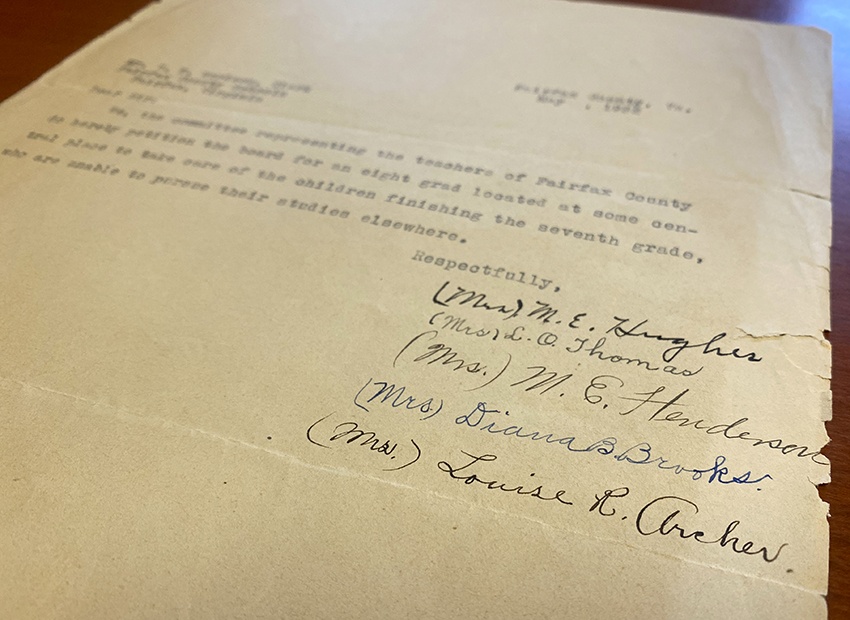 Fairfax County, Va.
May , 19
Fairfax, Virginia
Dear Sir:
We, the committee representing the teachers of Fairfax County
do hereby petition the board for an eight grad located at some cen-
tral place to take care of the children finishing the seventh grade,
who are unable to pursue their studies elsewhere.
Respectfully,
(Mrs) M. E. Hughes
(Mrs) L. O. Thomas
(Mrs.) M. E. Henderson
(Mrs) Diana B. Brooks.
(Mrs.) Louise R. Archer.